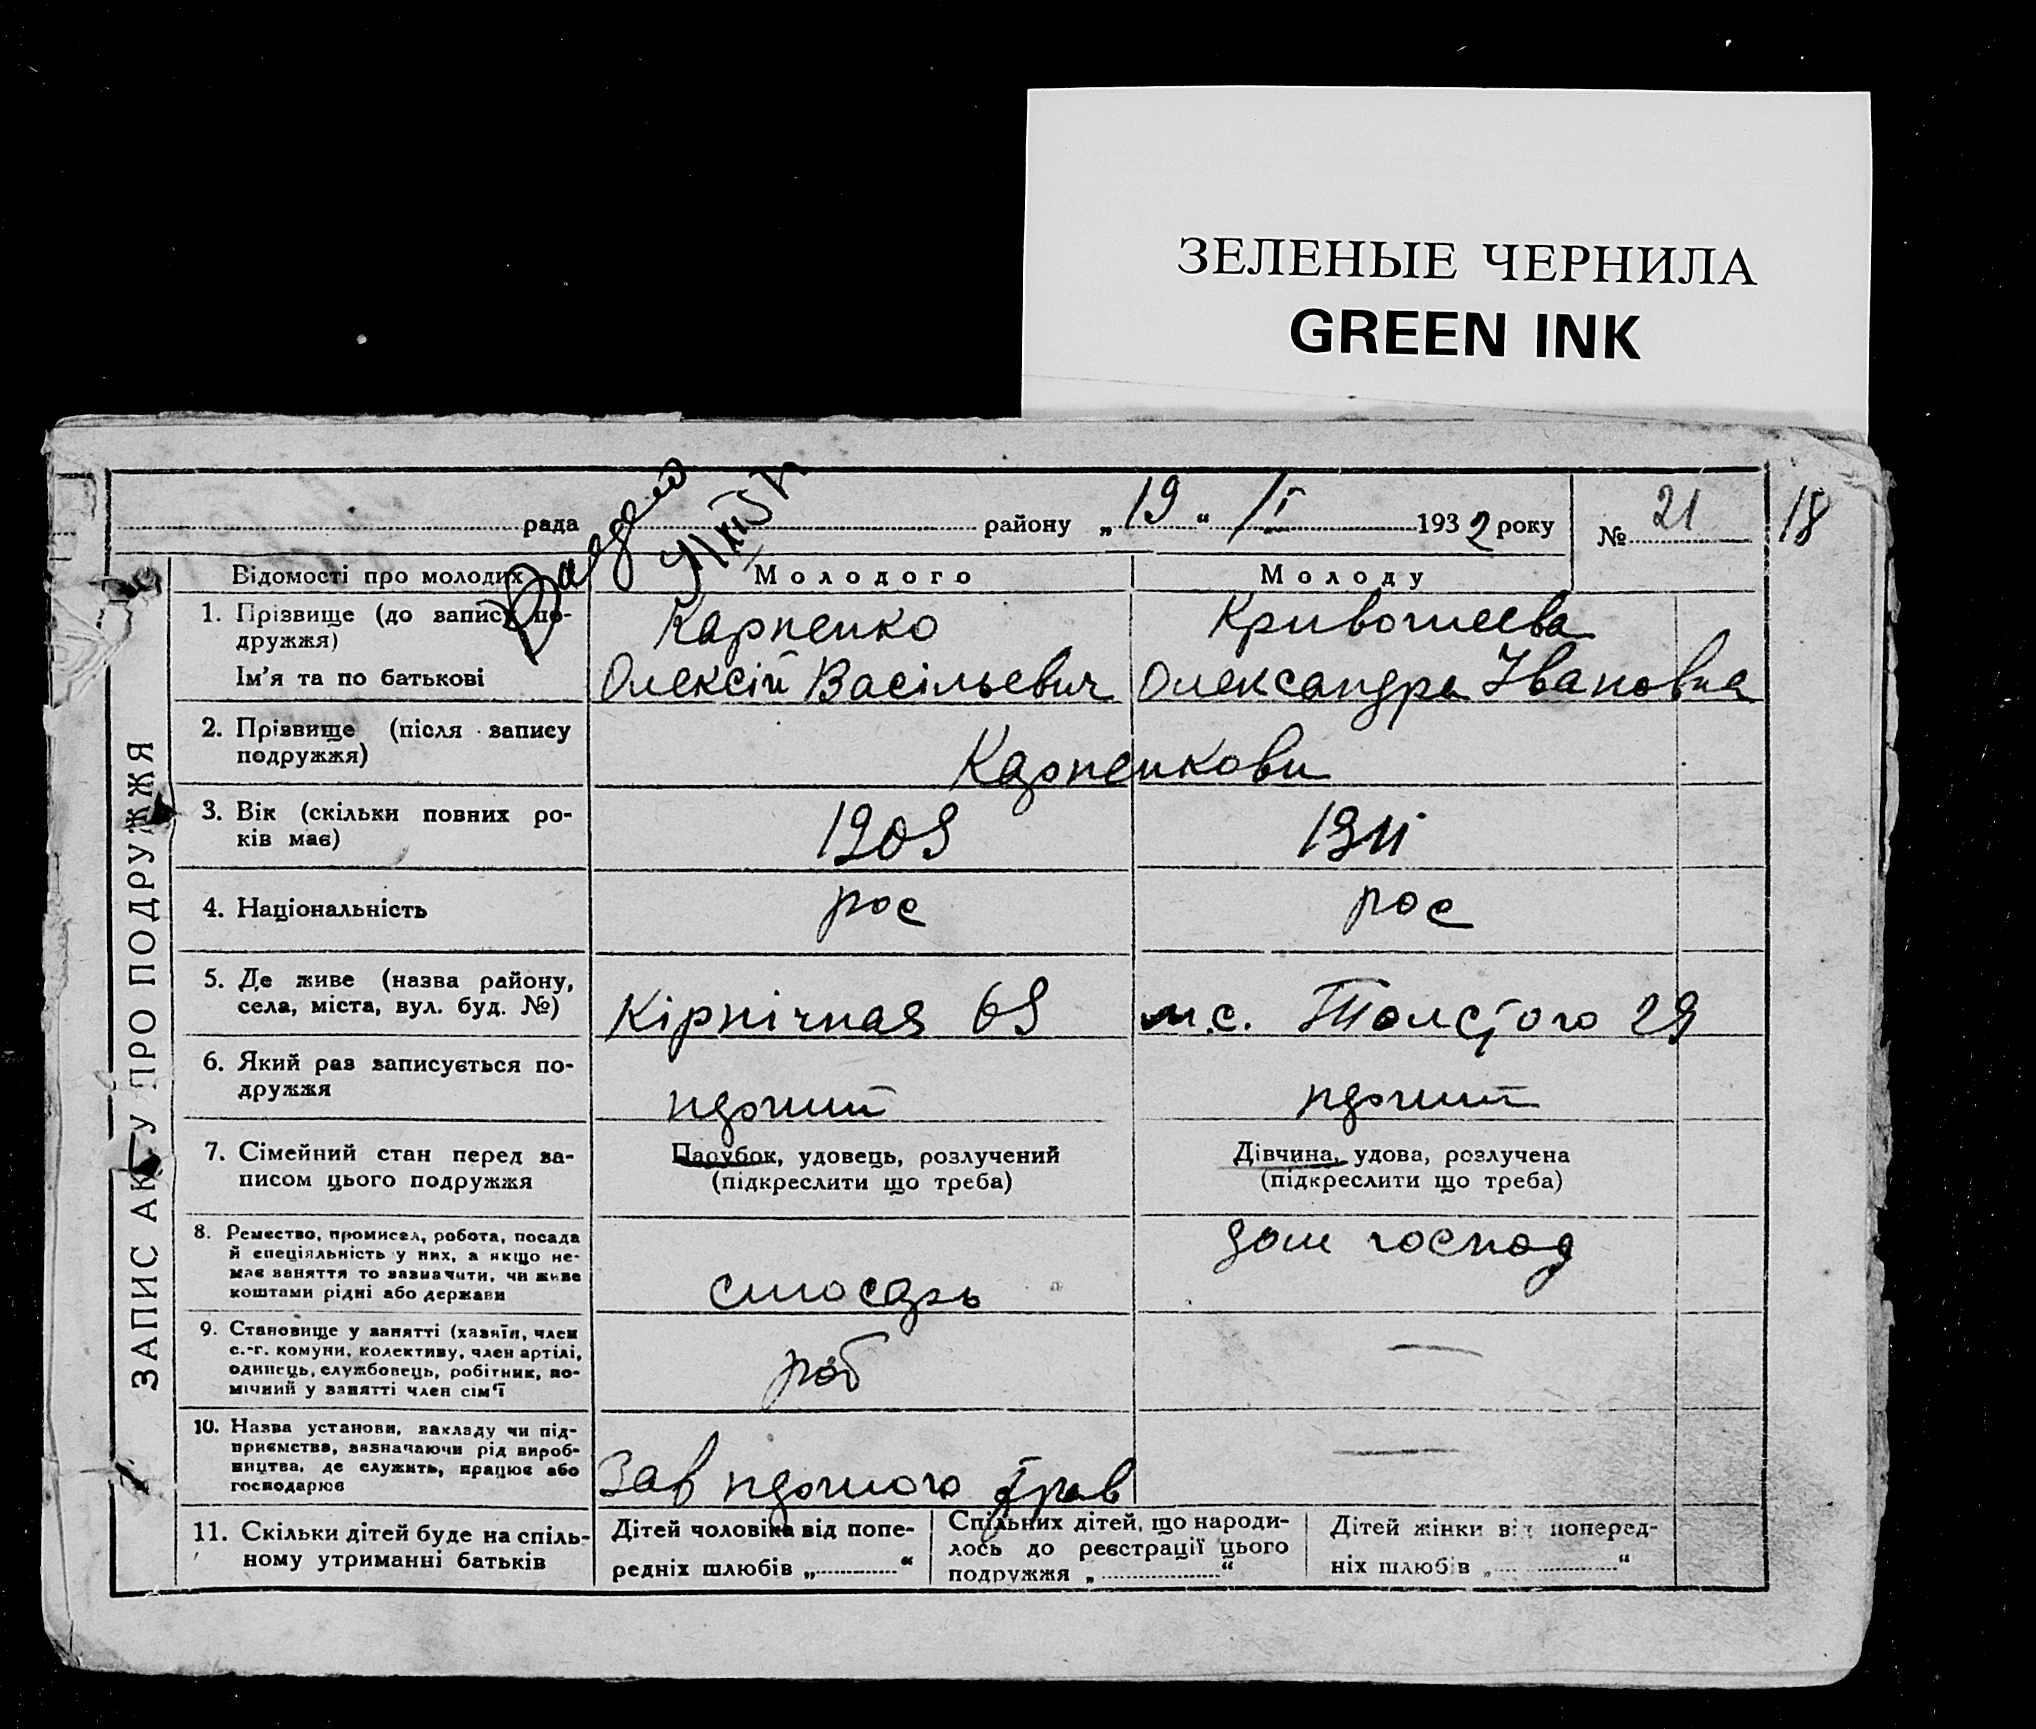 ЗЕЛЕНЫЕ ЧЕРНИЛА
GREEN INK
рада району „19“ I 1932 року № 21 18
Відомості про молодих Молодого Молоду
ЗАПИС АКТУ ПРО ПОДРУЖЖЯ
1. Прізвище (до запису по-
дружжя) Карпенко Кривошеева
Ім'я та по батькові Олексій Васільевич Олександра Івановна
2. Прізвище (після запису
подружжя) Карпенкови
3. Вік (скільки повних ро-
ків має) 1909 1911
4. Національність рос рос
5. Де живе (назва району,
села, міста, вул. буд. №) Кірпічная 69 м.с. Толстого 29
6. Який раз записується по-
дружжя
7. Сімейний стан перед за-
писом цього подружжя
Парубок, удовець, розлучений
(підкреслити що треба)
Дівчина, удова, розлучена
(підкреслити що треба)
8. Ремество, промисел, робота, посада
й спеціяльність у них, а якщо не-
має заняття то зазначити, чи живе
коштами рідні або держави
слюсарь
дом господ
9. Становище у занятті (хазяїн, член
с.-г. комуни, колективу, член артілі,
одинець, службовець, робітник, по-
мічний у занятті член сім'ї
роб —
10. Назва установи, закладу чи під-
приємства, зазначаючи рід вироб-
ництва, де служить, працює або
господарює
Зав —
11. Скільки дітей буде на спіль-
ному утриманні батьків
Дітей чоловіка від попе-
редніх шлюбів „ “
Спільних дітей, що народи-
лось до реєстрації цього
подружжя „ “
Дітей жінки від поперед-
ніх шлюбів „ “